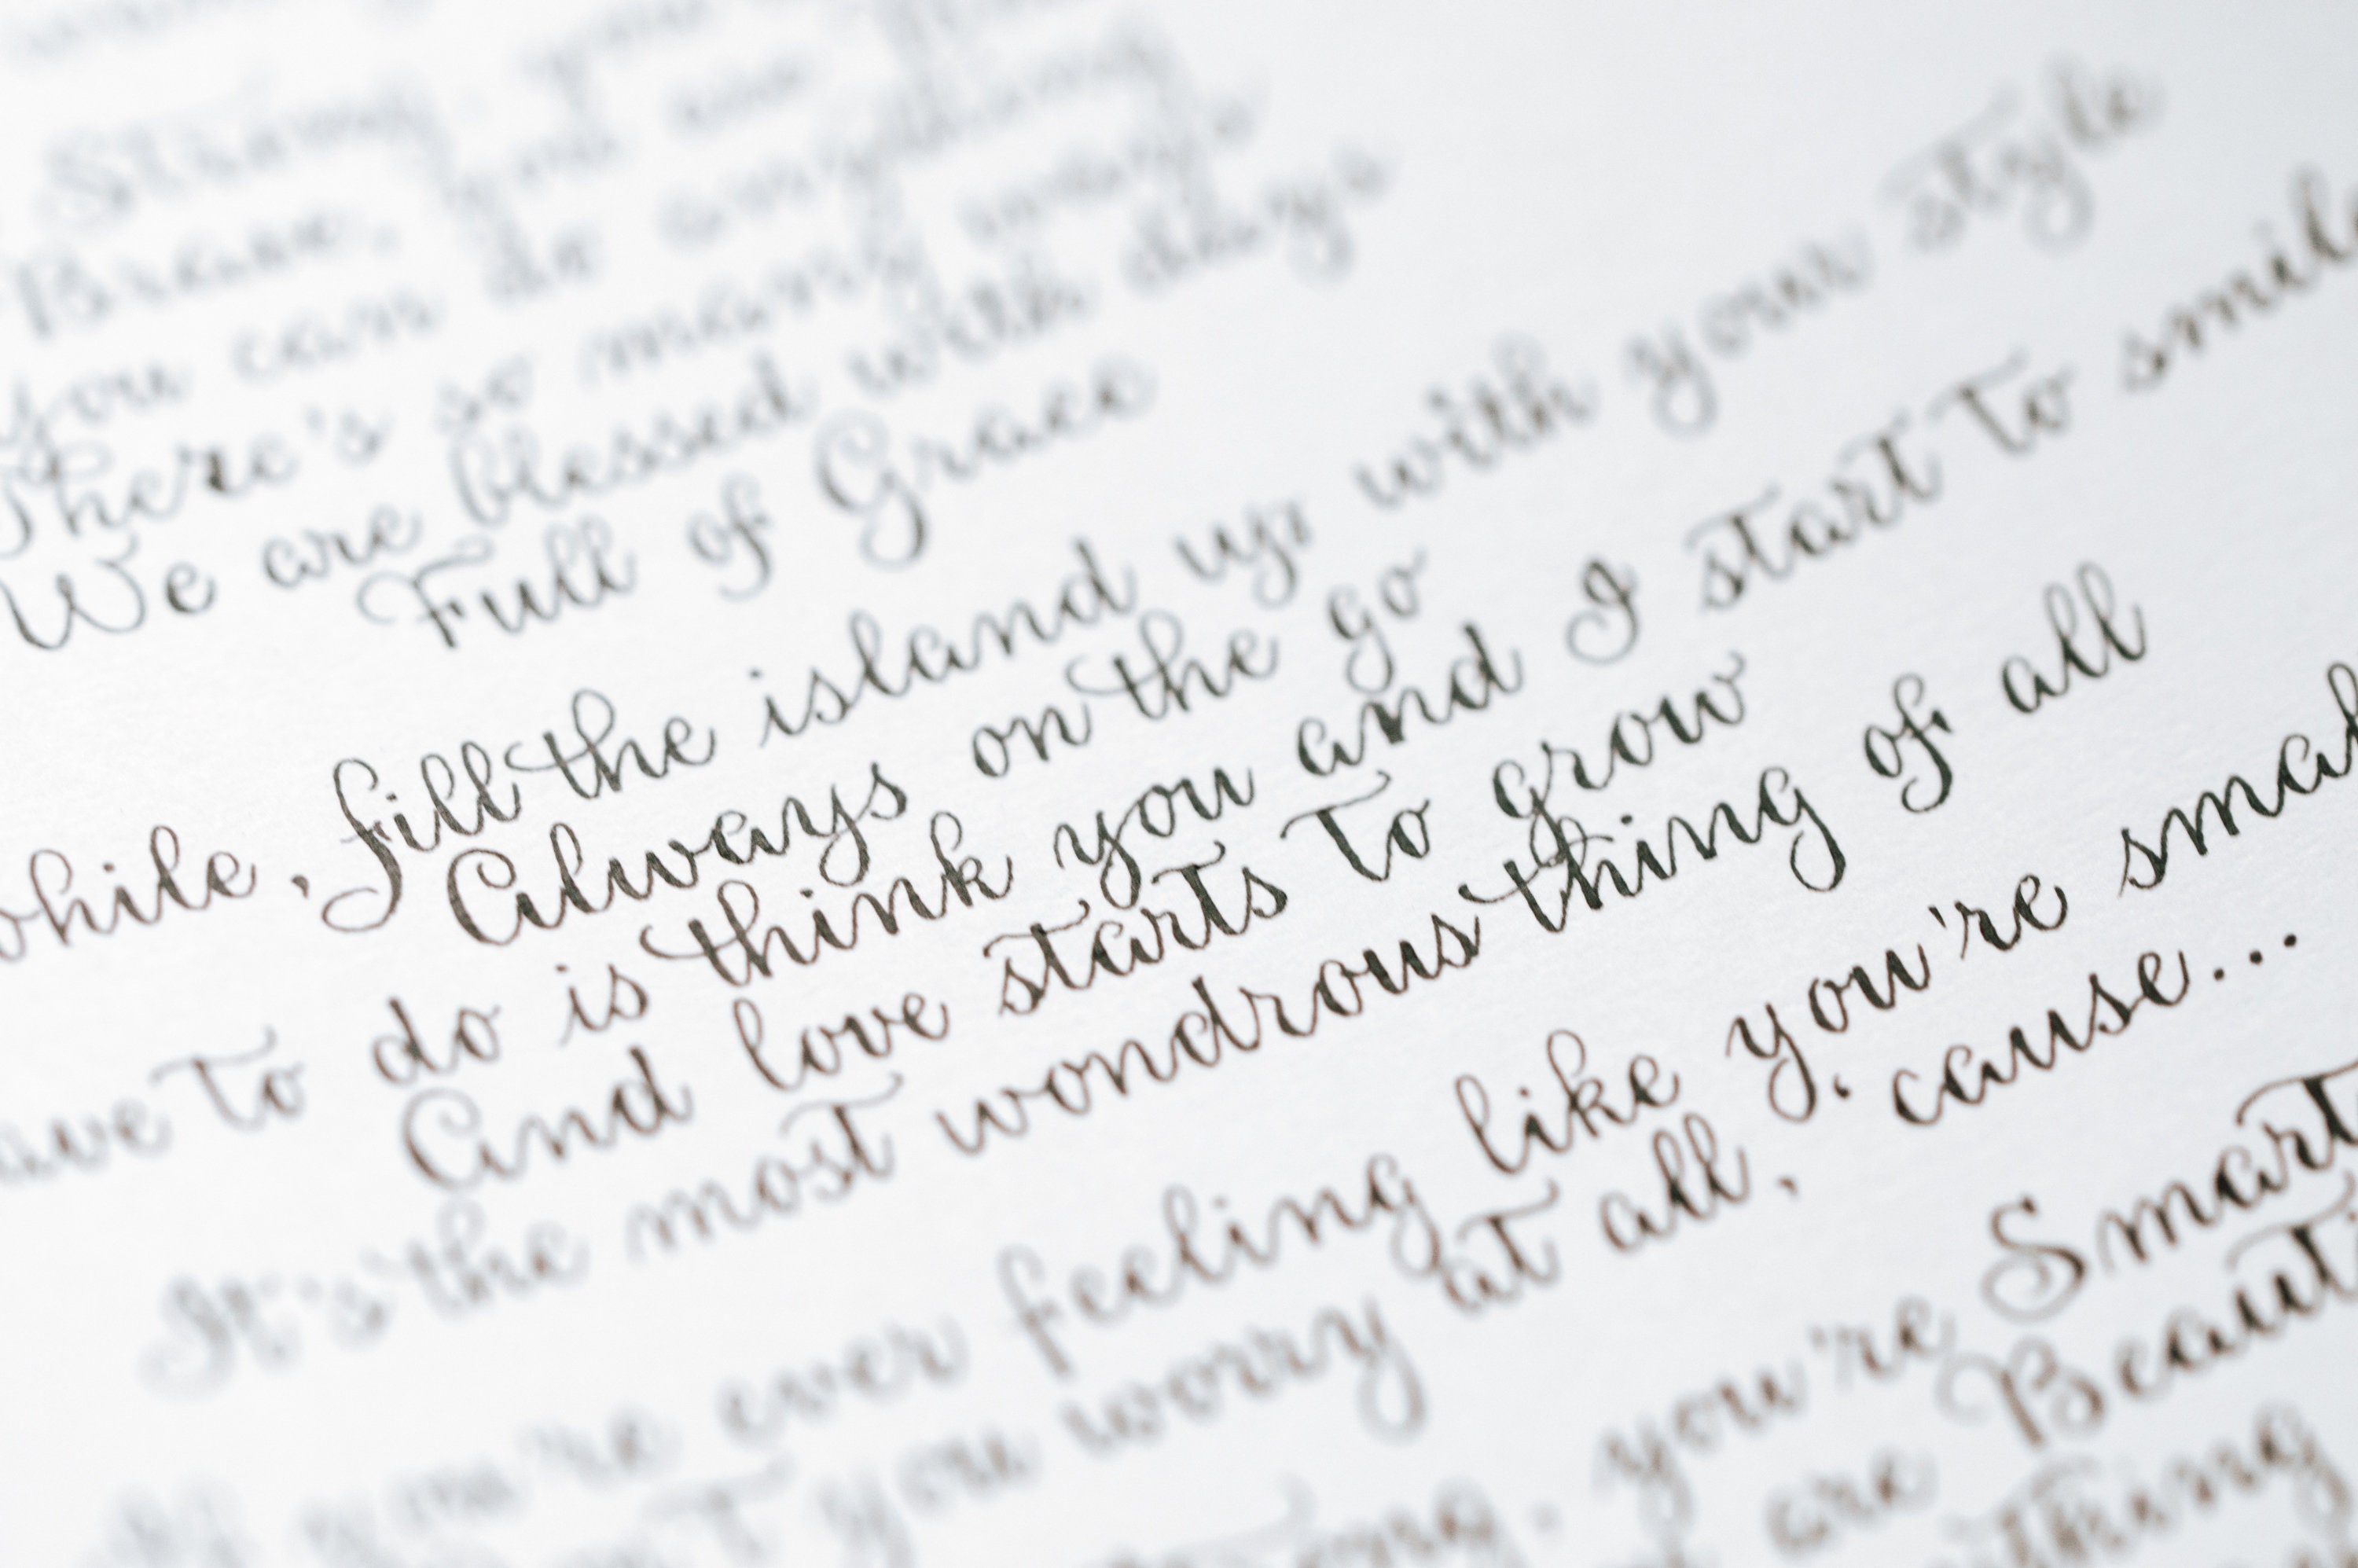 Strong, you
Brave, you are
you can do anything
There's so many ways
We are blessed with days
Full of Grace
while, fill the island up with your style
Always on the go
ave to do is think you and I start to smile
And love starts to grow
It's the most wondrous thing of all
If you're ever feeling like you're smal
you worry at all, 'cause...
ong, you're Smart
are Beauti
thing